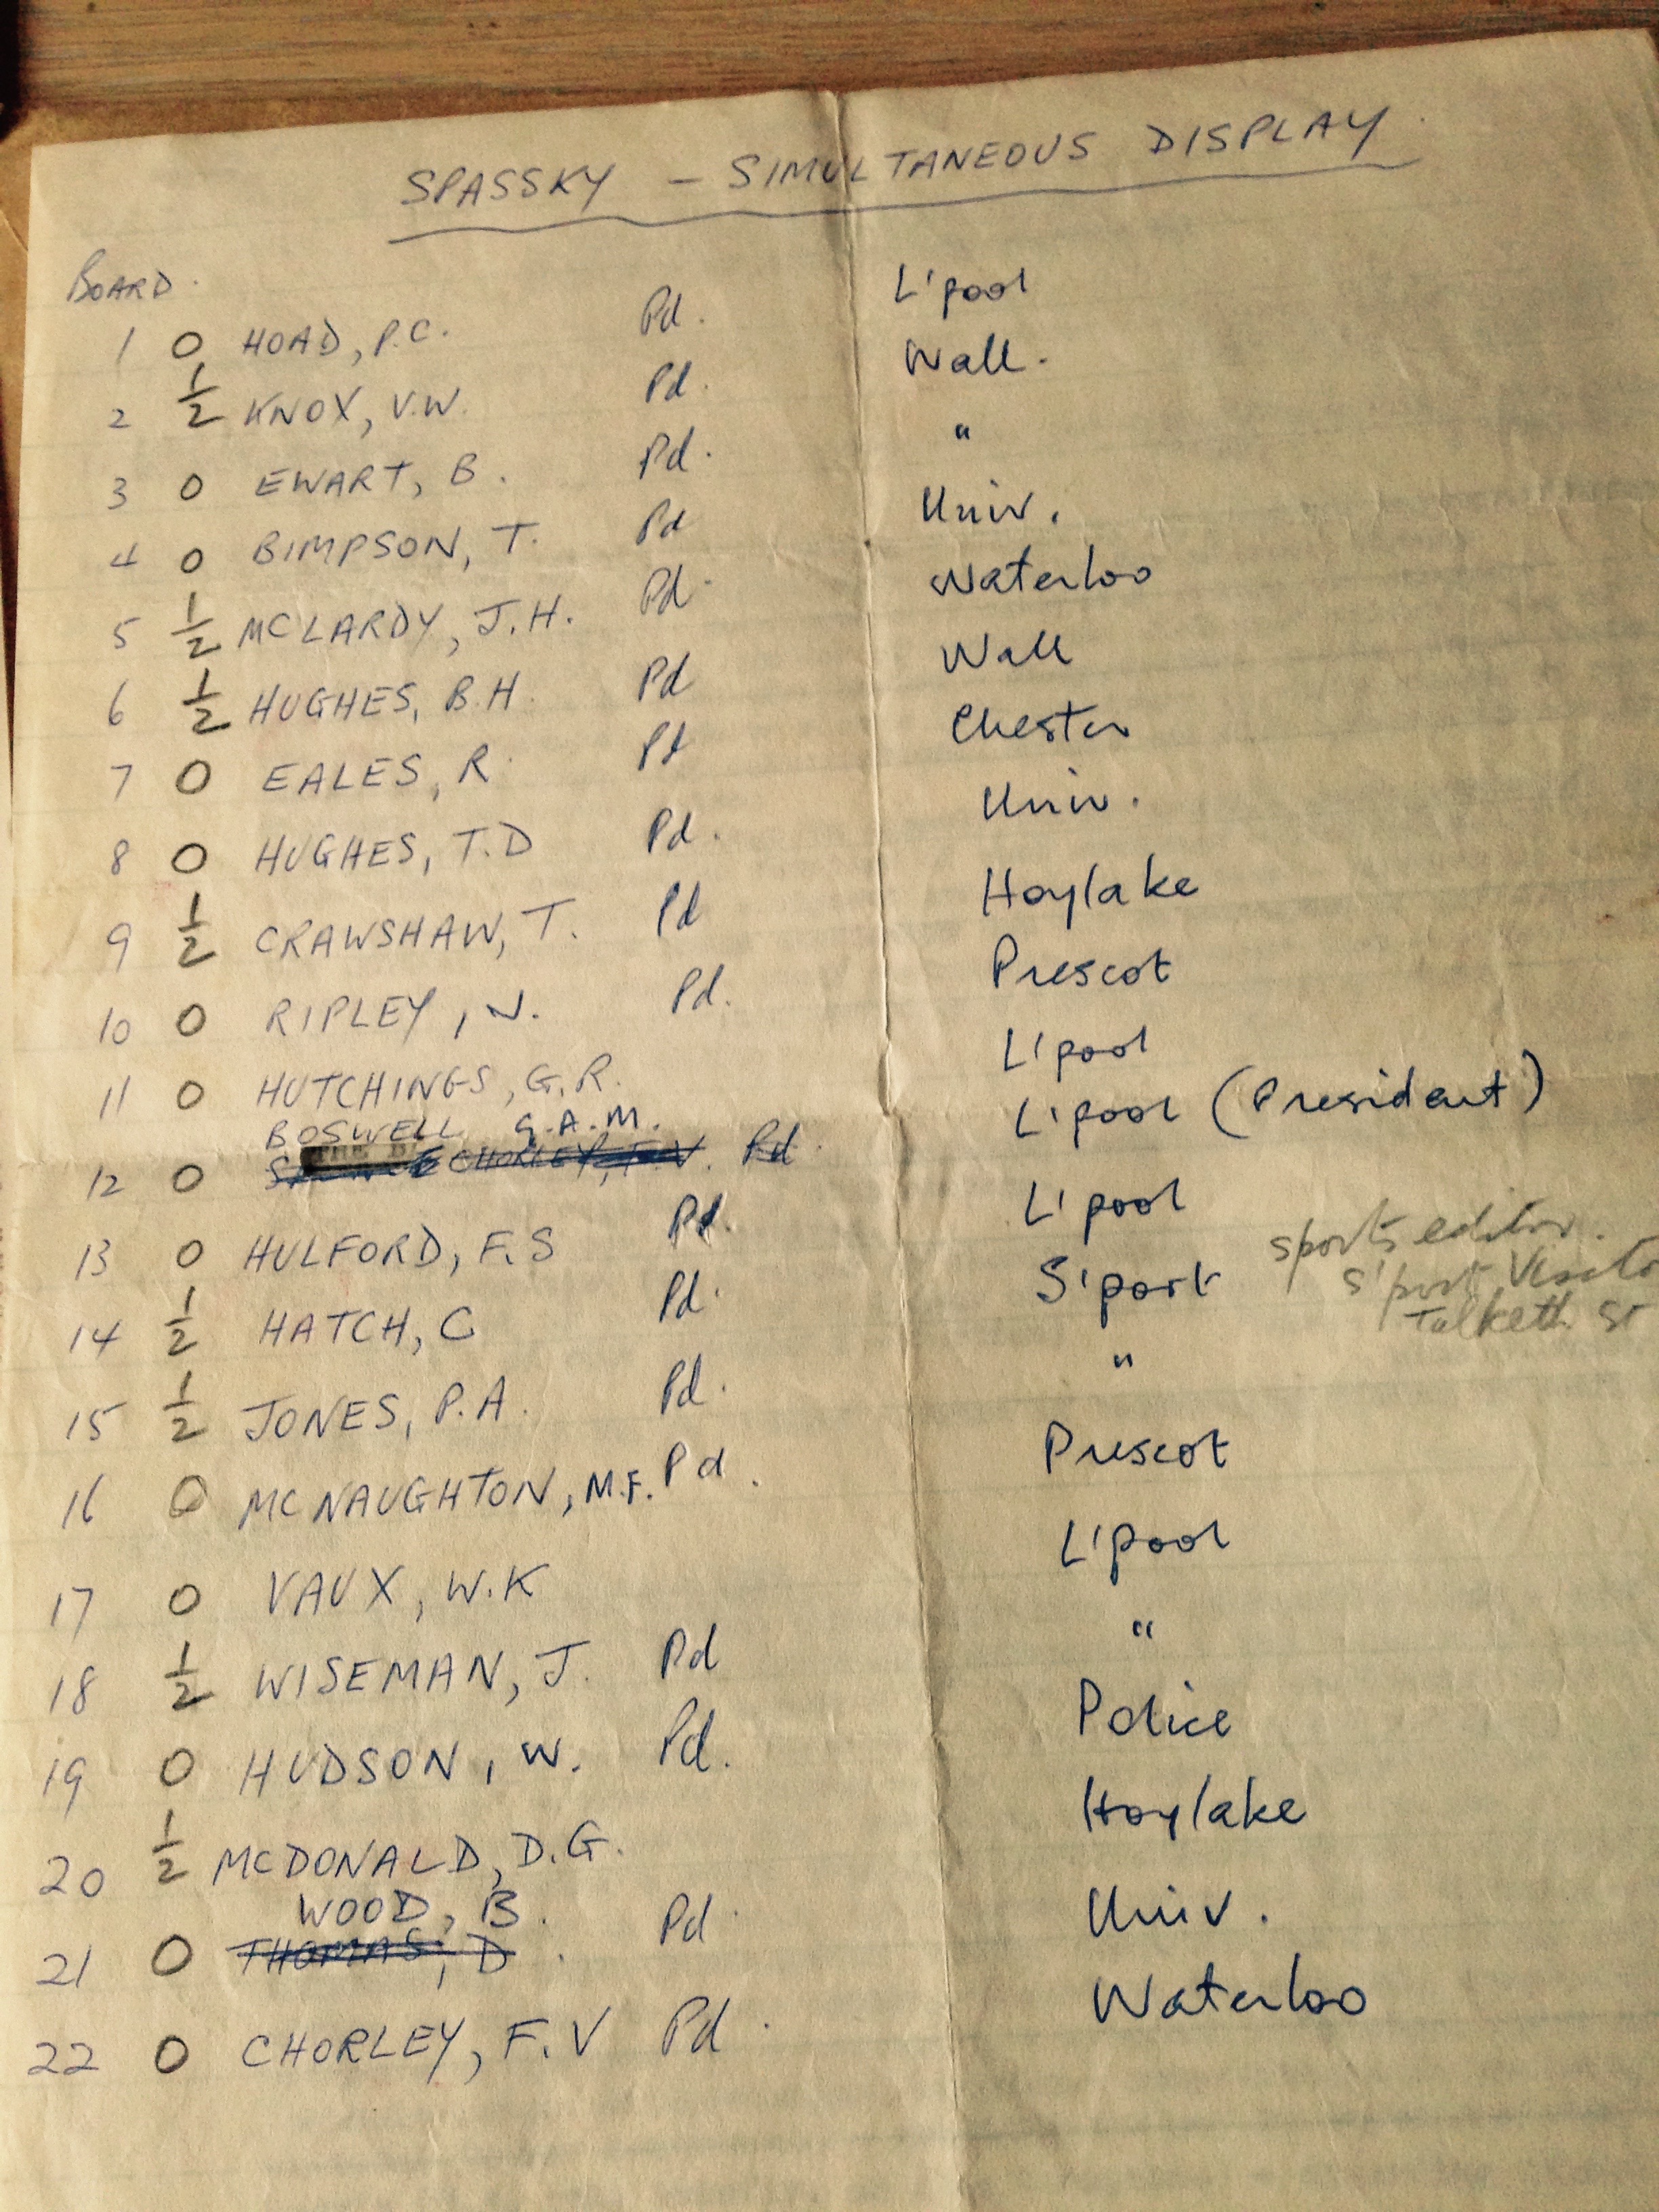 SPASSKY – SIMULTANEOUS DISPLAY
BOARD
1 0 HOAD, P.C. Pd. L'pool
2 ½ KNOX, V.W. Pd. Wall.
3 0 EWART, B. Pd. "
4 0 BIMPSON, T. Pd Univ.
5 ½ MCLARDY, J.H. Pd. Waterloo
6 ½ HUGHES, B.H. Pd Wall
7 0 EALES, R. Pd Chester
8 0 HUGHES, T.D Pd. Univ.
9 ½ CRAWSHAW, T. Pd Hoylake
10 0 RIPLEY, N. Pd. Prescot
11 0 HUTCHINGS, G.R. L'pool
BOSWELL G.A.M. L'pool (President)
12 0 CHORLEY, F.V. Pd.
13 0 HULFORD, F.S Pd. L'pool
14 ½ HATCH, C Pd. S'port sports editor.
S'port
Talketh St
15 ½ JONES, P.A. Pd. "
16 0 MCNAUGHTON, M.F. Pd. Prescot
17 0 VAUX, W.K L'pool
18 ½ WISEMAN, J. Pd "
19 0 HUDSON, W. Pd. Police
20 ½ MCDONALD, D.G. Hoylake
WOOD, B. Pd Univ.
21 0 THOMAS, D.
22 0 CHORLEY, F.V Pd. Waterloo